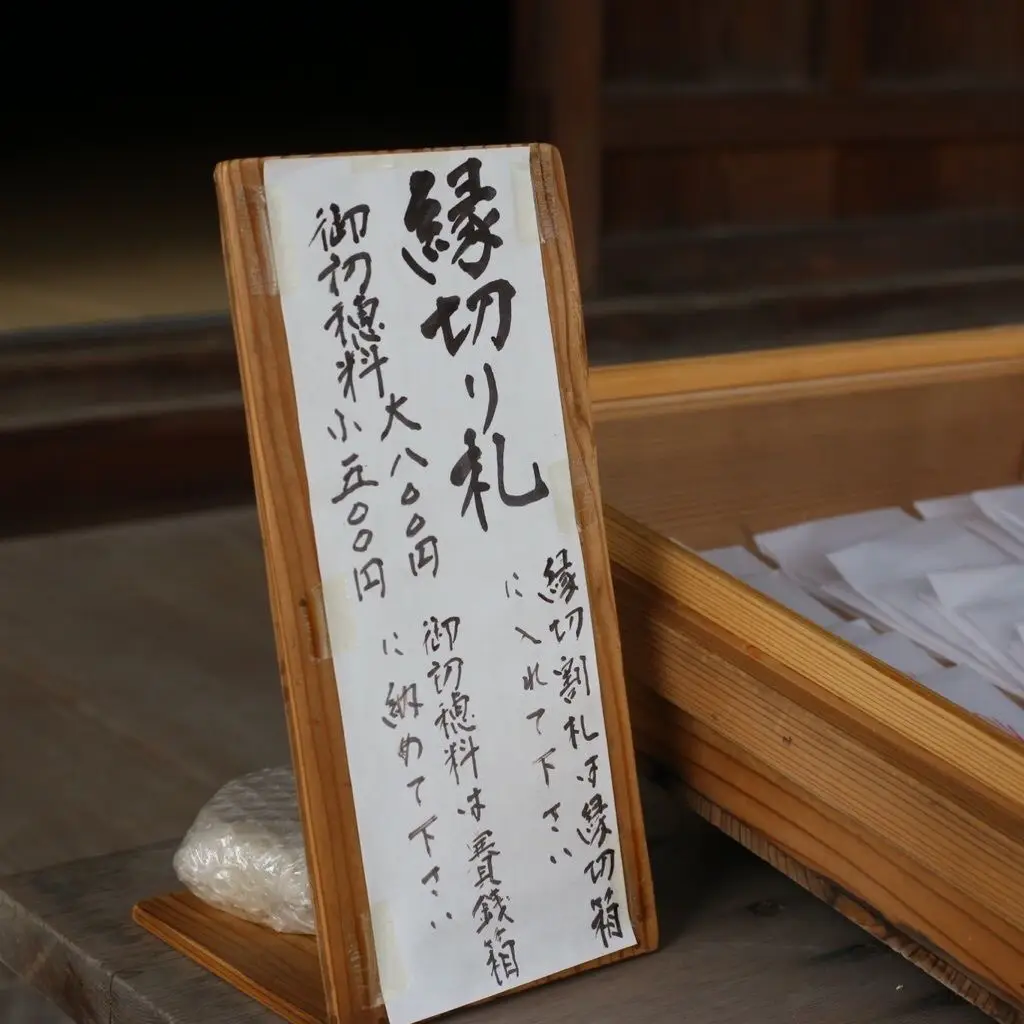 縁切り札
縁切割札は縁切箱
に入れて下さい
御初穂料 大八〇〇円
小五〇〇円
御初穂料は賽銭箱
に納めて下さい